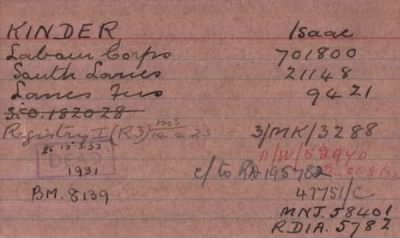 KINDER Isaac
Labour Corps 701800
South Lancs 21148
Lancs Fus 9421
3.E.O. 182028
Registry I (R3) 3/MK/3288
11/W/
DEAD c/to
1931 47751/C
BM. 8139 MNJ. 58401
RDIA. 5782